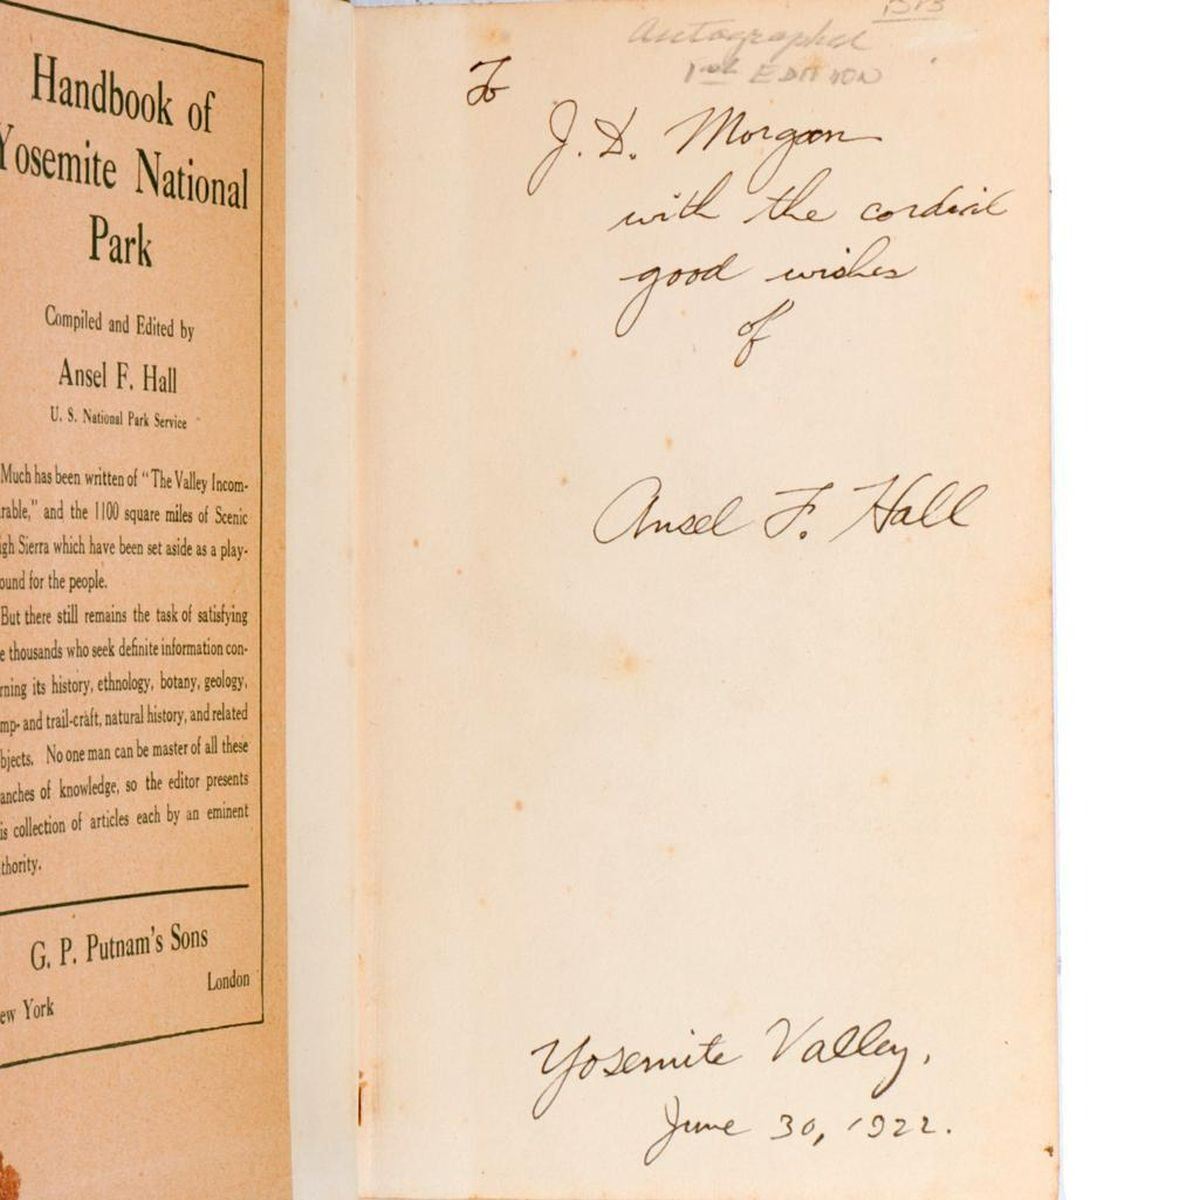 Handbook of
Yosemite National
Park
Compiled and Edited by
Ansel F. Hall
U. S. National Park Service
Much has been written of "The Valley Incom-
rable," and the 1100 square miles of Scenic
igh Sierra which have been set aside as a play-
ound for the people.
But there still remains the task of satisfying
e thousands who seek definite information con-
rning its history, ethnology, botany, geology,
mp- and trail-craft, natural history, and related
bjects. No one man can be master of all these
anches of knowledge, so the editor presents
is collection of articles each by an eminent
thority.
G. P. Putnam's Sons
ew York London
Autographed
1st EDITION
To
J. D. Morgan
with the cordial
good wishes
of
Ansel F. Hall
Yosemite Valley,
June 30, 1922.